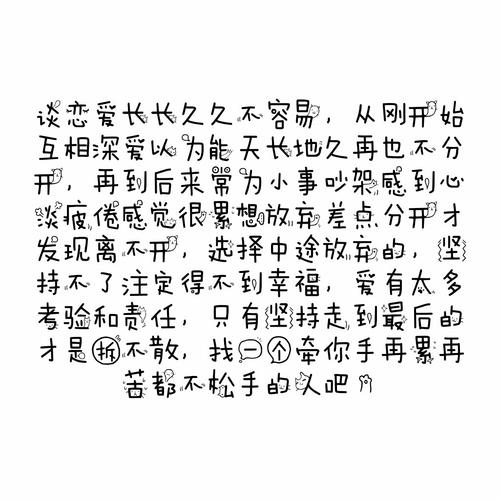 谈恋爱长长久久不容易，从刚开始
互相深爱以为能天长地久再也不分
开，再到后来常为小事吵架感到心
淡疲倦感觉很累想放弃差点分开才
发现离不开，选择中途放弃的，坚
持不了注定得不到幸福，爱有太多
考验和责任，只有坚持走到最后的
才是拆不散，找一个牵你手再累再
苦都不松手的人吧